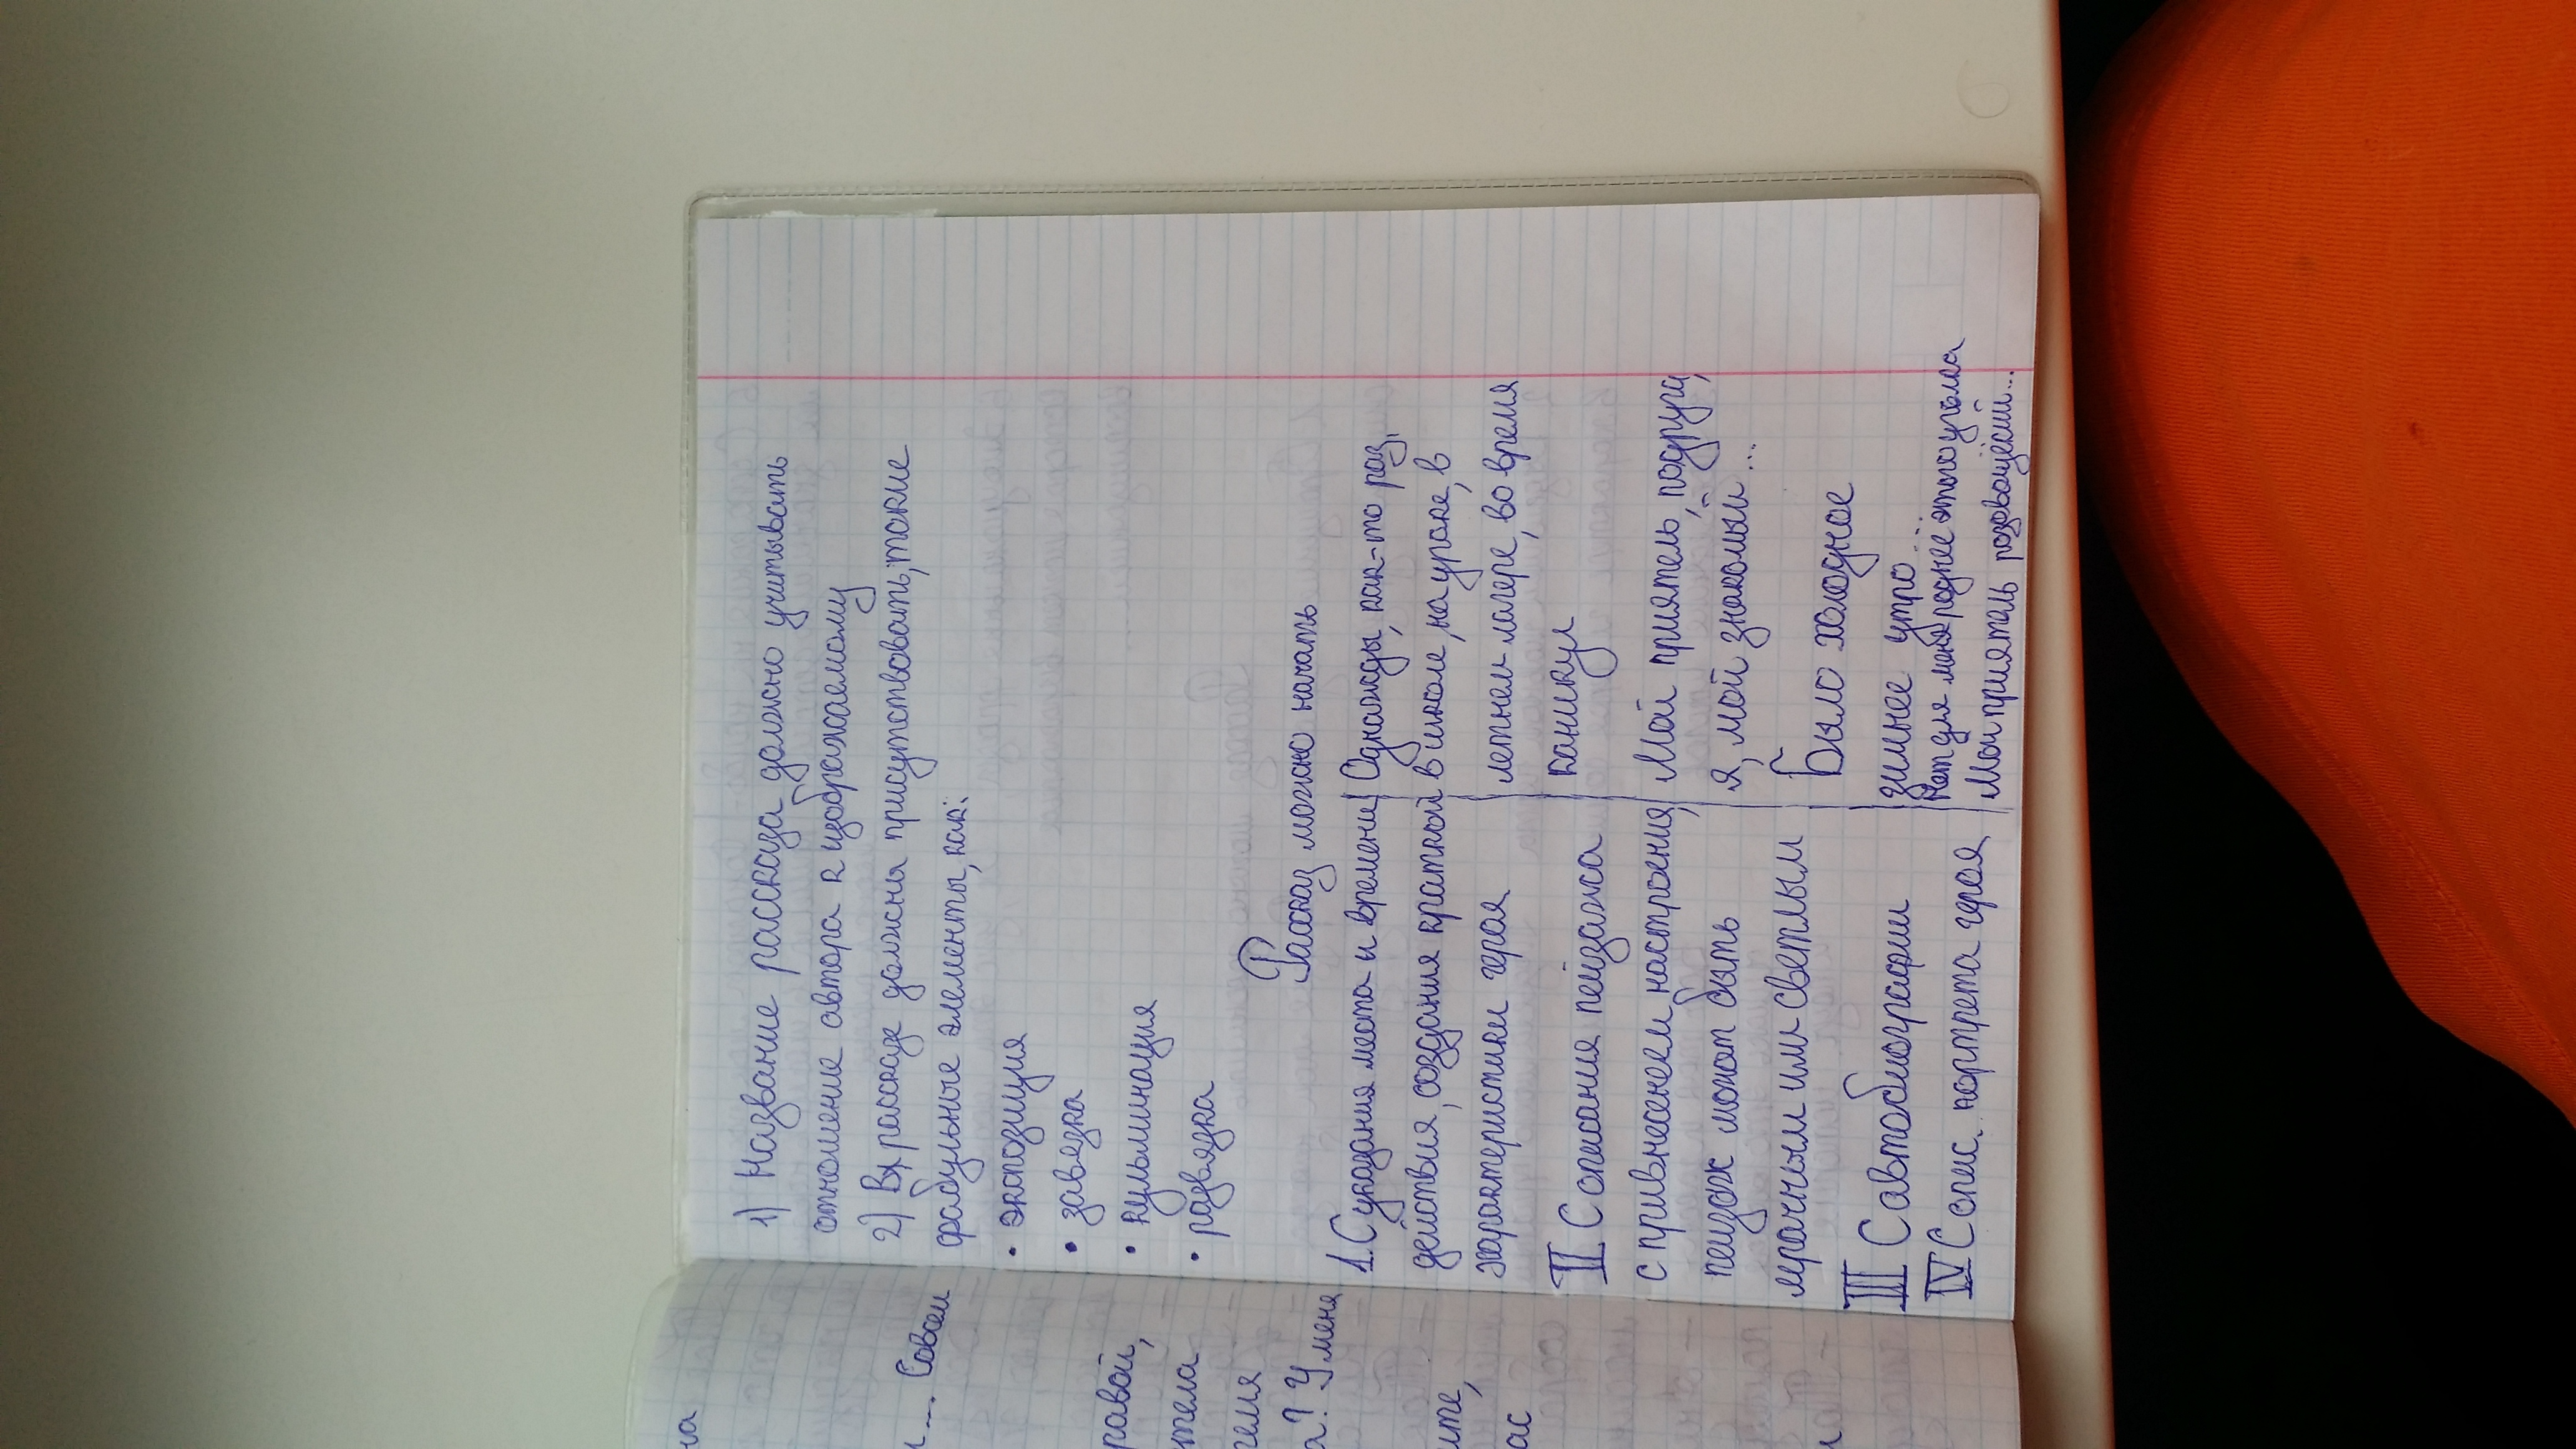 на
... Совсем
равой,
тела
гемя
а? У меня
ите,
ас
1) Название рассказа должно учитывать
отношение автора к изображаемому
2) В рассказе должны присутствовать, такие
фабульные элементы, как:
• экспозиция
• завязка
• кульминация
• развязка
Рассказ можно начать
1. С указания места и времени | Однажды, как-то раз,
действия, создания краткой | в школе, на уроке, в
характеристики героя | летнем лагере, во время
II. С описания пейзажа | каникул
с привнесением настроения, | Мой приятель, подруга,
пейзаж может быть | я, мой знакомый...
мрачным или светлым | Было холодное
III С автобиографии | зимнее утро...
Нет для меня роднее этого уголка
IV С опис. портрета героя | Мой приятель розовощёкий...